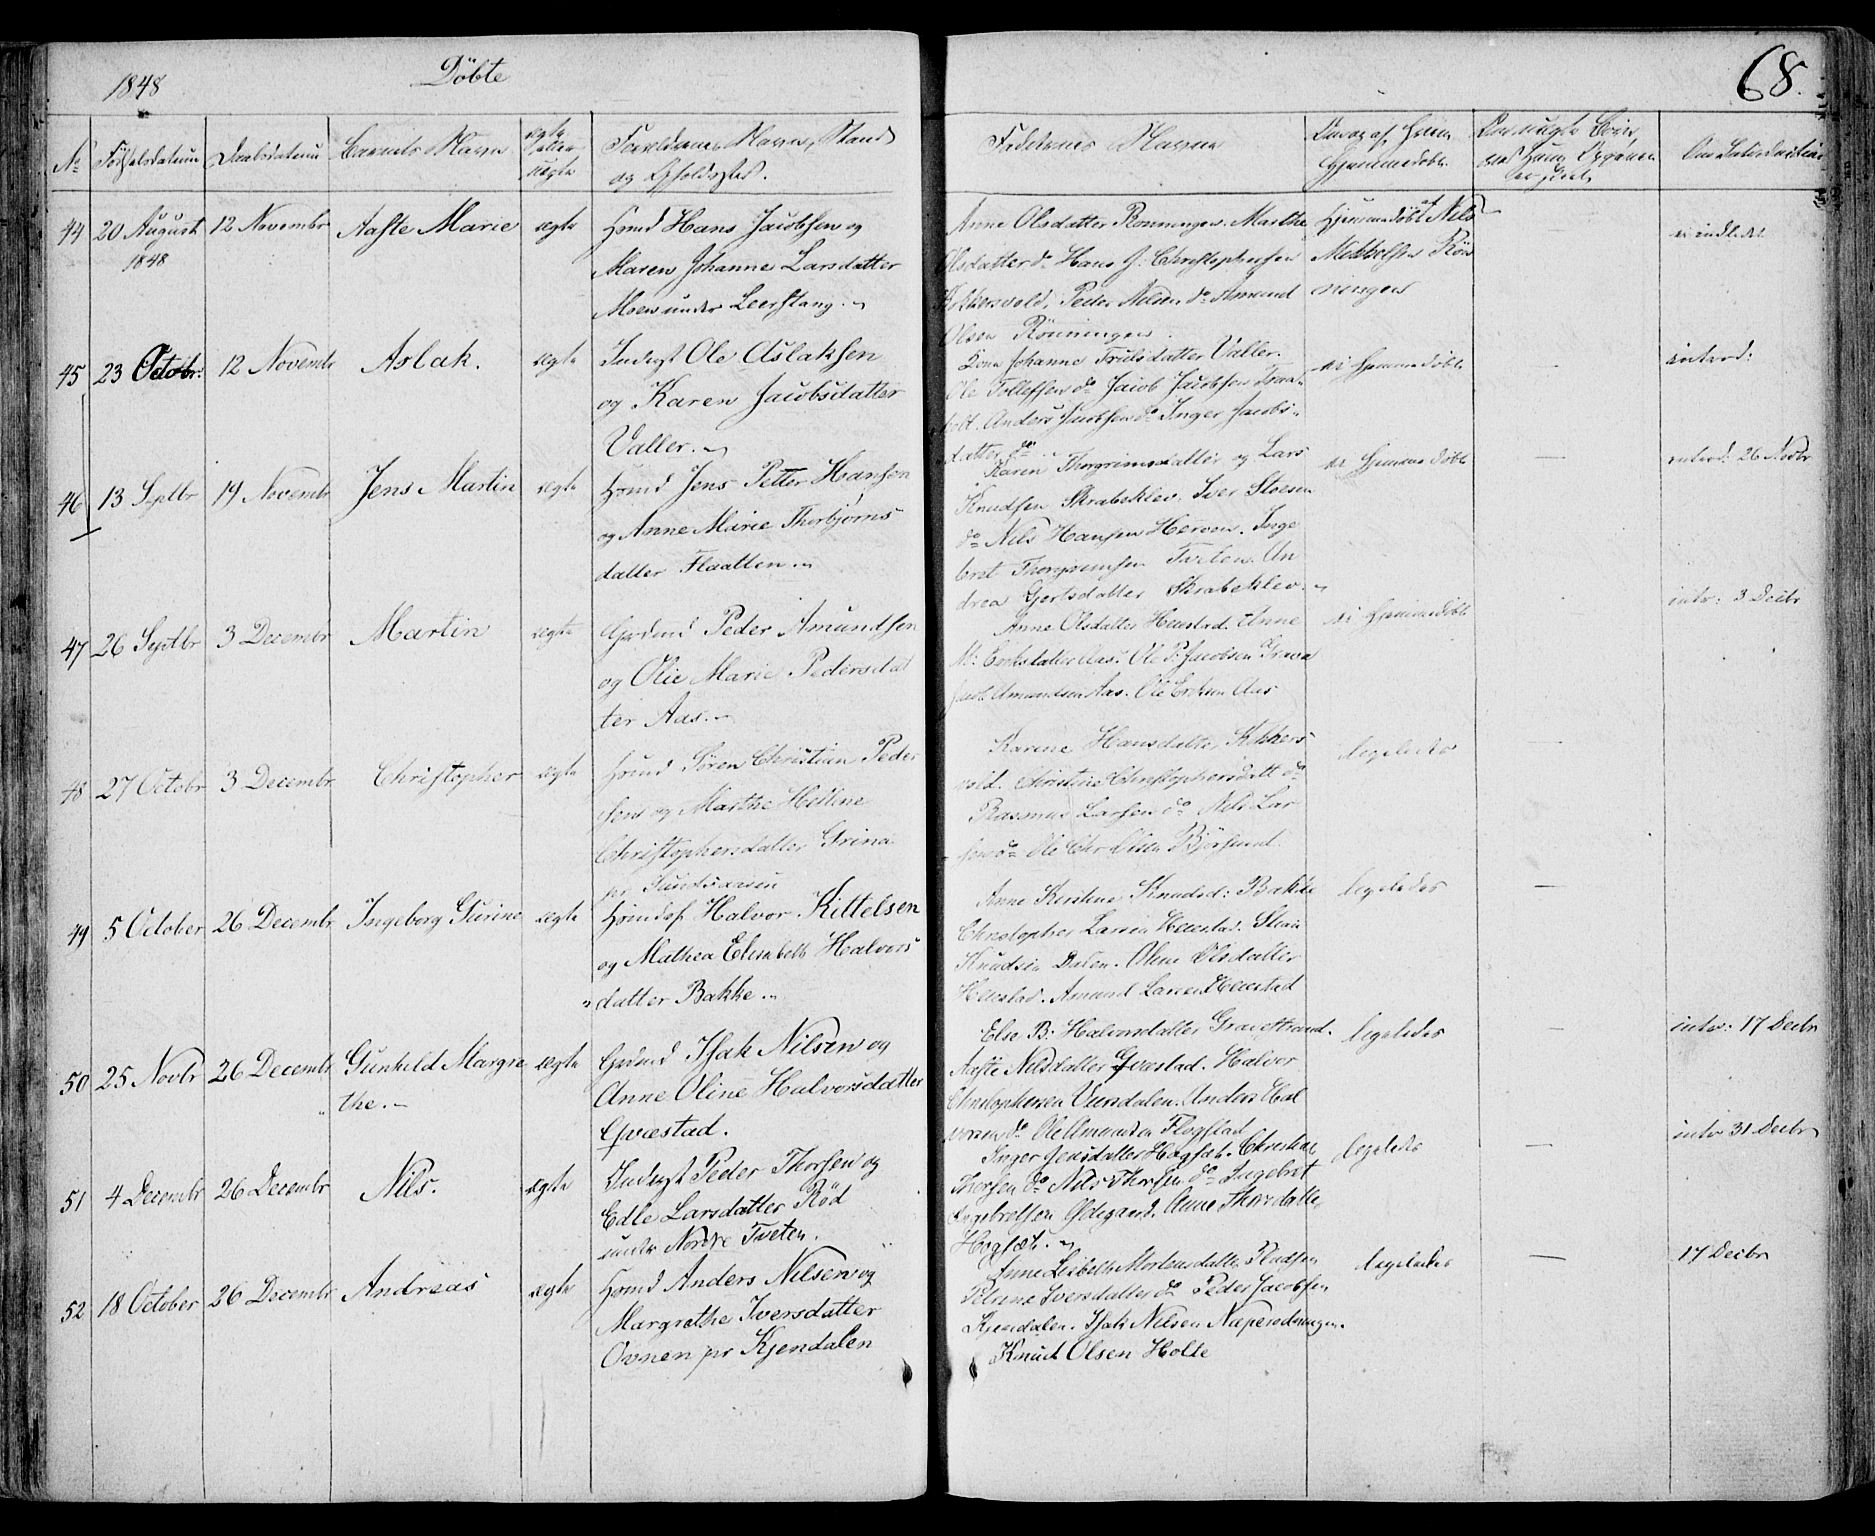 1848
Döbte
68.
No
Fødselsdatum
Daabsdatum
Barnets Navn
ægte
eller
uægte
Forældrenes Navn, Stand
og Opholdssted.
Faddernes Navne
Om Introduction
44
20 August
1848
12 Novembr
Aaste Marie
ægte
Hmd Hans Jacobsen og
Maren Johanne Larsdatter
Moen under Leerstang.
Anne Olsdatter Rønningen. Marthe
Olsdatter do Hans J. Christophersen
Kikkersvold. Peder Nilsen do Amund
Olsen Rönningen.
Hjemmedöbt af Nils
Mikkelsen Rön
ningen
ei indledet
45
23 Octobr.
12 Novembr
Aslak.
ægte
Inderst Ole Aslaksen
og Karen Jacobsdatter
Valler.
Johanne Trulsdatter Valler.
Ole Tollefsen do Jacob Jacobsen
Anders Jacobsen do Inger Jacobs-
datter do
ei Hjemmedöbt
introd:
46
13 Septbr
19 Novembr
Jens Martin
ægte
Hmd Jens Petter Hansen
og Anne Marie Thorbjørns
datter Flaatten.
Karen Thorgrimsdatter og Lars
Knudsen Skrabeklev. Iver
do Nils Hansen Herven. Inge
bret Thorgrimsen Tveten. An
drea Gjertsdatter Skrabeklev.
ei Hjemmedöbt
introd: 26 Novbr
47
26 Septbr
3 Decembr
Martin
ægte
Gmd Peder Amundsen
og Olie Marie Pedersdat
ter Aas.
Anne Olsdatter Heistad. Anne
M: Eriksdatter Aas. Ole P. Jacobsen
Jacob Amundsen Aas. Ole Eriksen Aas
ei Hjemmedöbt
intr: 3 Decbr
48
27 Octobr
3 Decembr
Christopher
ægte
Hmd Søren Christian Peder
sen og Marthe Helene
Christophersdatter Grina
pr Sundsaasen
Karine Hansdatter Kikkers
vold. Christine Christophersdatt do
Rasmus Larsen do Nils Lar
sen do Ole Chr Olsen
ligeledes
49
5 October
26 Decembr
Ingeborg Gurine
ægte
Halvor Kittelsen
og Mathea Elisabeth Halvors
datter Bakke.
Anne Kirstine Knudsd: Bakke
Christopher Larsen Heistad.
Knudsen Olene Olsdatter
Heistad. Amund Larsen Heistad
ligeledes
50
25 Novbr
26 Decembr
Gunhild Margre
the.
ægte
Gmd Isak Nilsen og
Anne Oline Halvorsdatter
Qvæstad.
Else B: Halvorsdatter Gravestrand.
Aaste Nilsdatter Qvæstad. Halvor
Christophersen Anders Hal
vorsen do Ole Amundsen Flogstad
ligeledes
intr: 17 Decbr
51
4 Decembr
26 Decembr
Nils.
ægte
Inderst Peder Thorsen og
Edle Larsdatter Röd
under Nordre Tveten.
Inger Jensdatter Hogsæt. Christine
Thorsen do Nils Thorsen do Ingebret
Ingebretsen Ødegaard. Anne Thorsdatter
Hogsæt.
ligeledes
intr 31 Decbr
52
18 October
26 Decembr
Andreas
ægte
Hmd Anders Nilsen og
Margrethe Iversdatter
Ovnen pr Kjendalen
Anne Lisbeth Mortensdatter
Petrine Iversdatter do Peder Jacobsen
Kjendalen. Isak Nilsen Næperødningen.
Knud Olsen Holte
ligeledes
17 Decbr